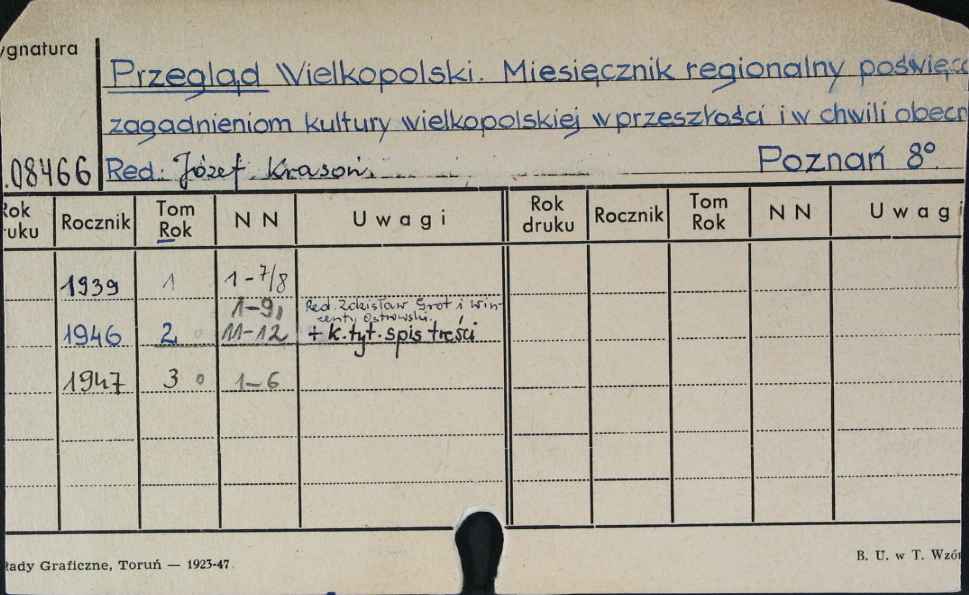 ygnatura
Przegląd Wielkopolski. Miesięcznik regionalny poświęc
zagadnieniom kultury wielkopolskiej w przeszłości i w chwili obecn
.08466 Red. Józef Krasoń. Poznań 8°
Rok druku Rocznik Tom Rok N N Uwagi Rok druku Rocznik Tom Rok N N Uwagi
1939 1 1-7/8
1-9, Red. Zdzisław Grot i Win-
centy Ostrowski.
1946 2 11-12 + k. tyt. spis treści
1947 3 1-6
łady Graficzne, Toruń — 1923-47
B. U. w T. Wzór